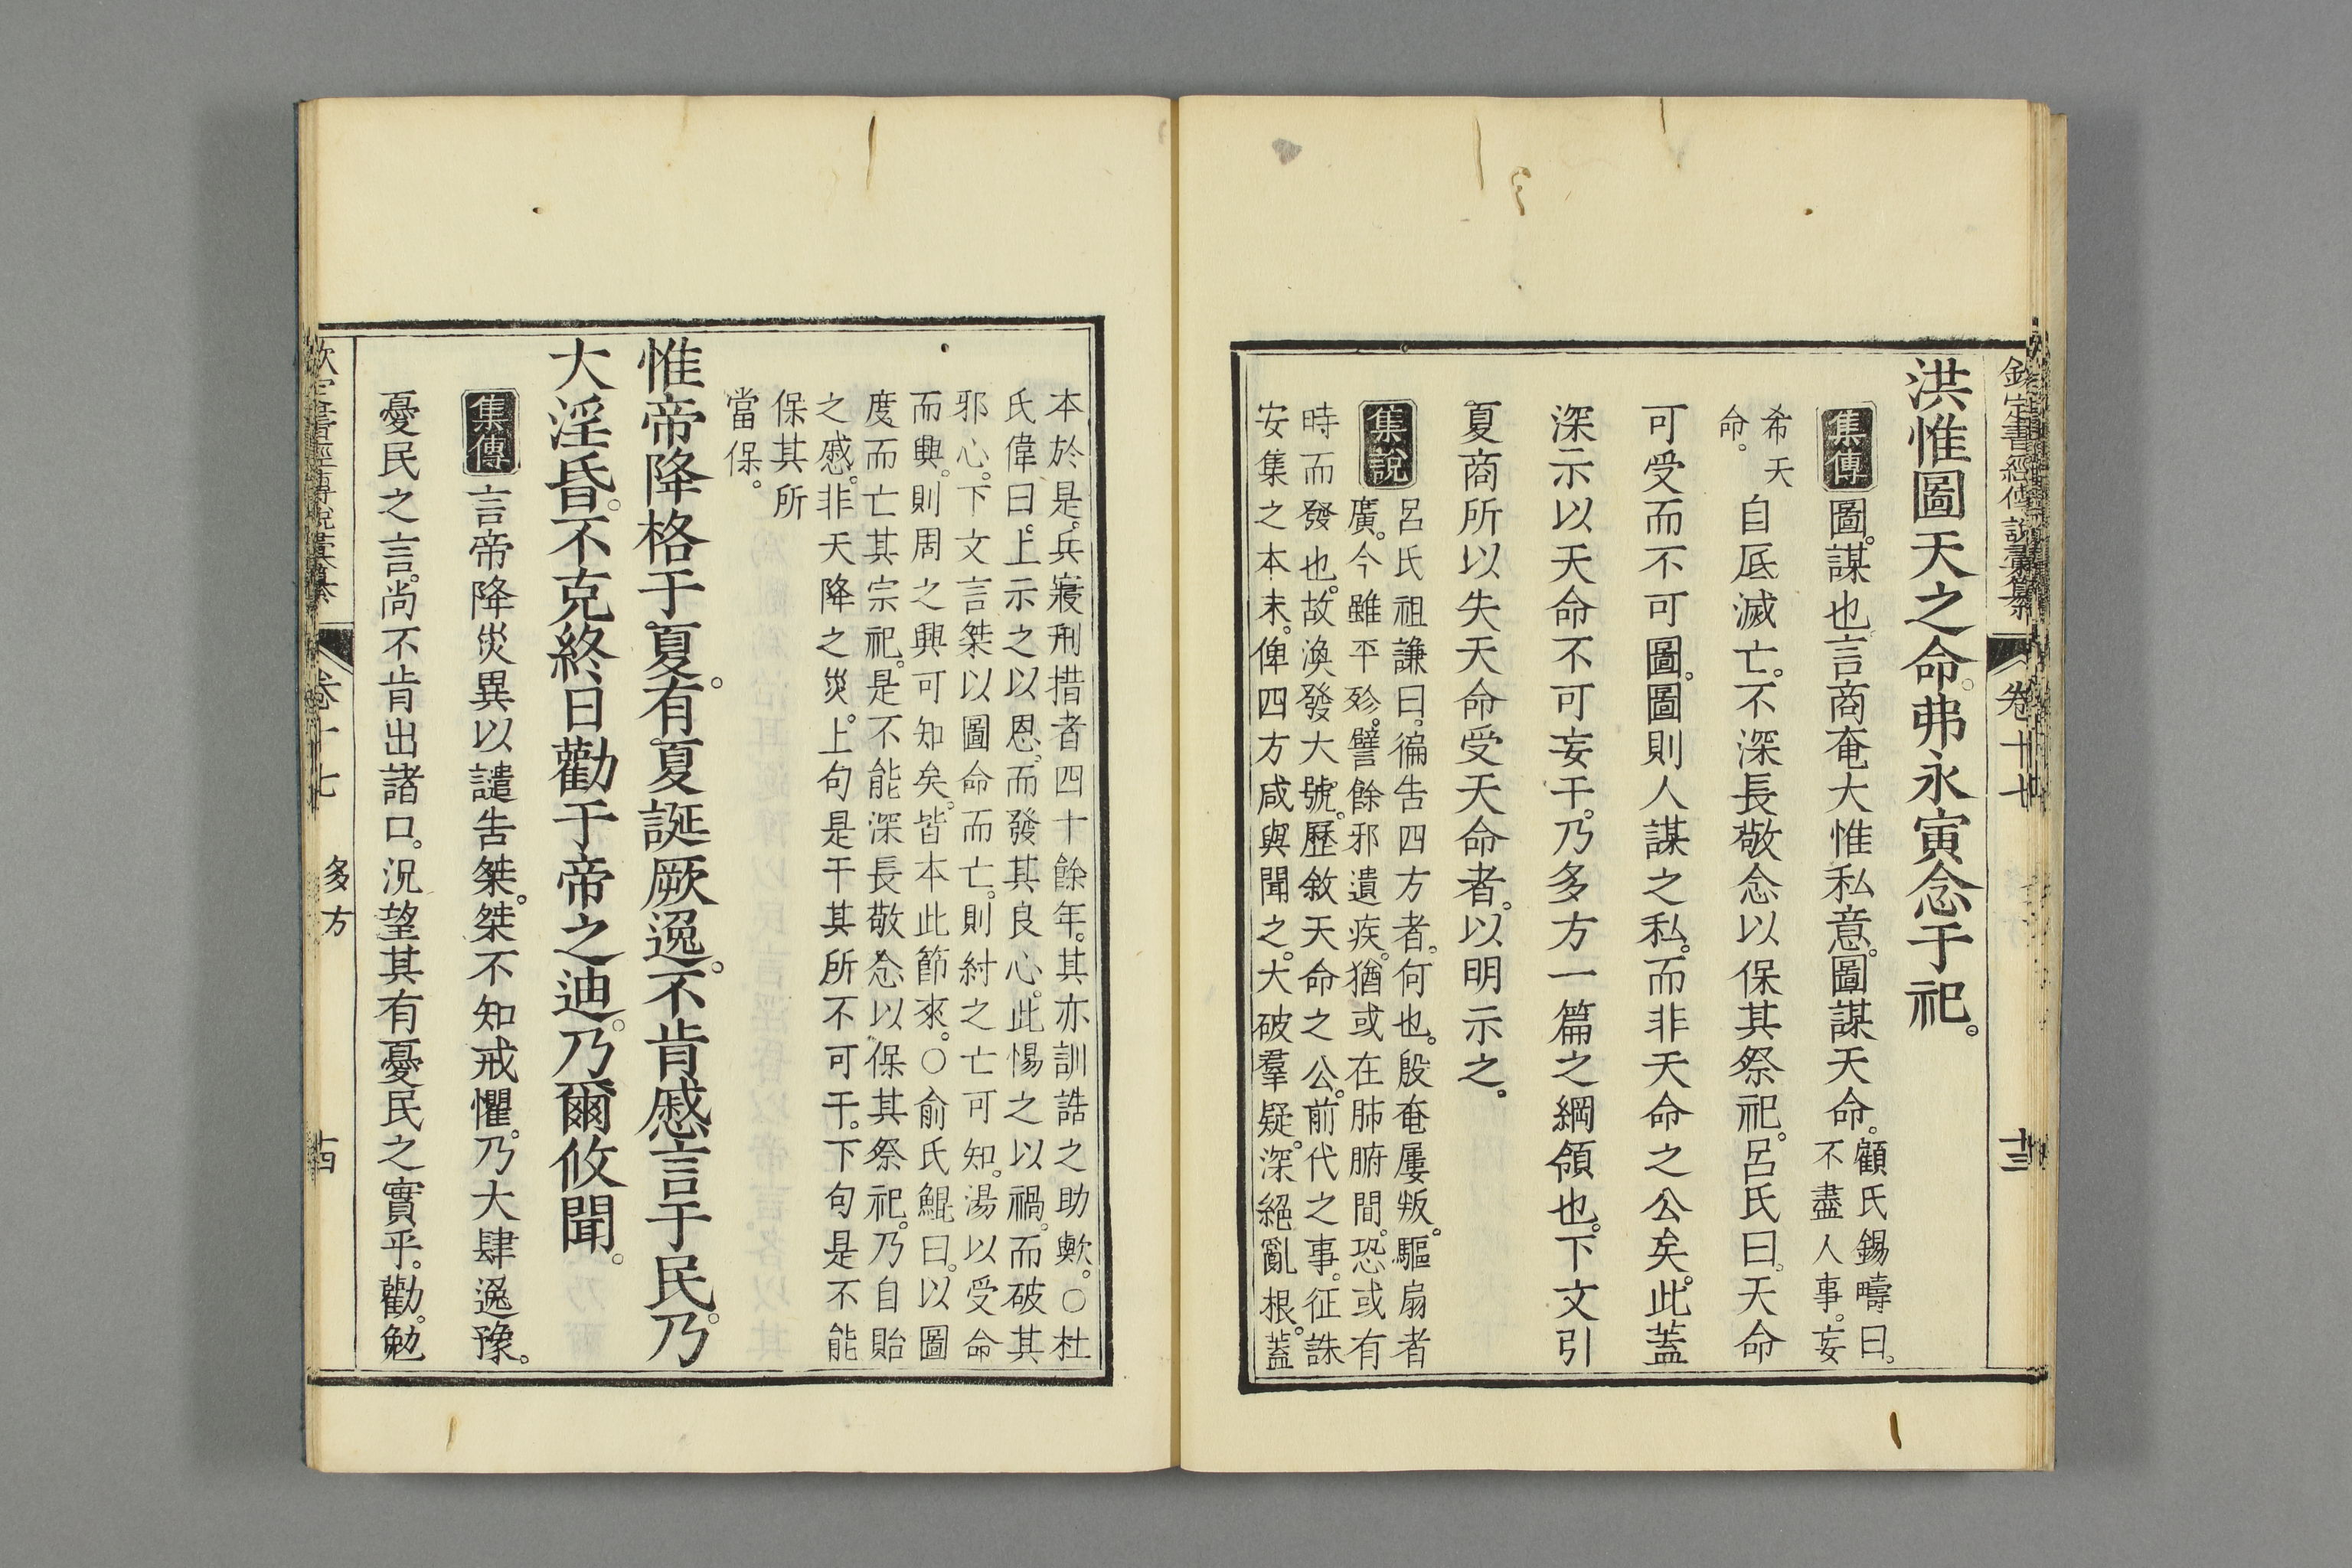 欽定書經傳說彙纂 卷十七 十三
洪惟圖天之命。弗永寅念于祀。
集傳 圖。謀也言商奄大惟私意。圖謀天命。顧氏錫疇曰。
不盡人事。妄
希天
命。
自厎滅亡。不深長敬念以保其祭祀。呂氏曰。天命
可受而不可圖。圖則人謀之私。而非天命之公矣。此蓋
深示以天命不可妄干。乃多方一篇之綱領也。下文引
夏商所以失天命受天命者。以明示之。
集說 呂氏祖謙曰。徧告四方者。何也。殷奄屢叛。驅扇者
廣。今雖平殄。譬餘邪遺疾。猶或在肺腑間。恐或有
時而發也。故渙發大號。歷敘天命之公。前代之事。征誅
安集之本末。俾四方咸與聞之。大破羣疑。深絕亂根。蓋
本於是。兵寢刑措者四十餘年。其亦訓誥之助歟。○杜
氏偉曰。上示之以恩。而發其良心。此惕之以禍。而破其
邪心。下文言桀以圖命而亡。則紂之亡可知。湯以受命
而興。則周之興可知矣。皆本此節來。○俞氏鯤曰。以圖
度而亡其宗祀。是不能深長敬念以保其祭祀。乃自貽
之慼。非天降之災。上句是干其所不可干。下句是不能
保其所
當保。
惟帝降格于夏。有夏誕厥逸。不肯慼言于民。乃
大淫昏。不克終日勸于帝之迪。乃爾攸聞。
集傳 言帝降災異以譴告桀。桀不知戒懼。乃大肆逸豫。
憂民之言。尚不肯出諸口。況望其有憂民之實乎。勸。勉
欽定書經傳說彙纂 卷十七 多方 十四